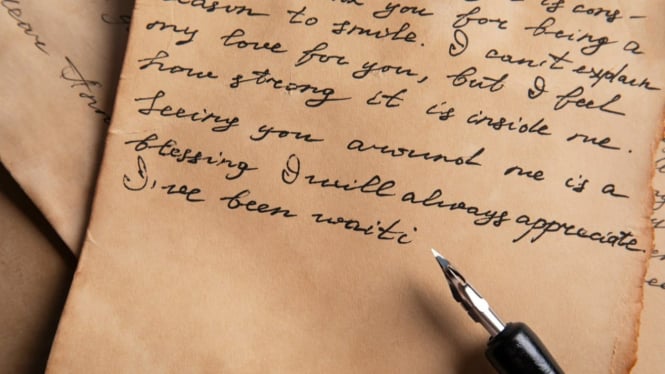 you for being a
reason to smile. I can't explain
my love for you, but I feel
how strong it is inside me.
Seeing you around me is a
blessing I will always appreciate.
I've been waiti
Dear